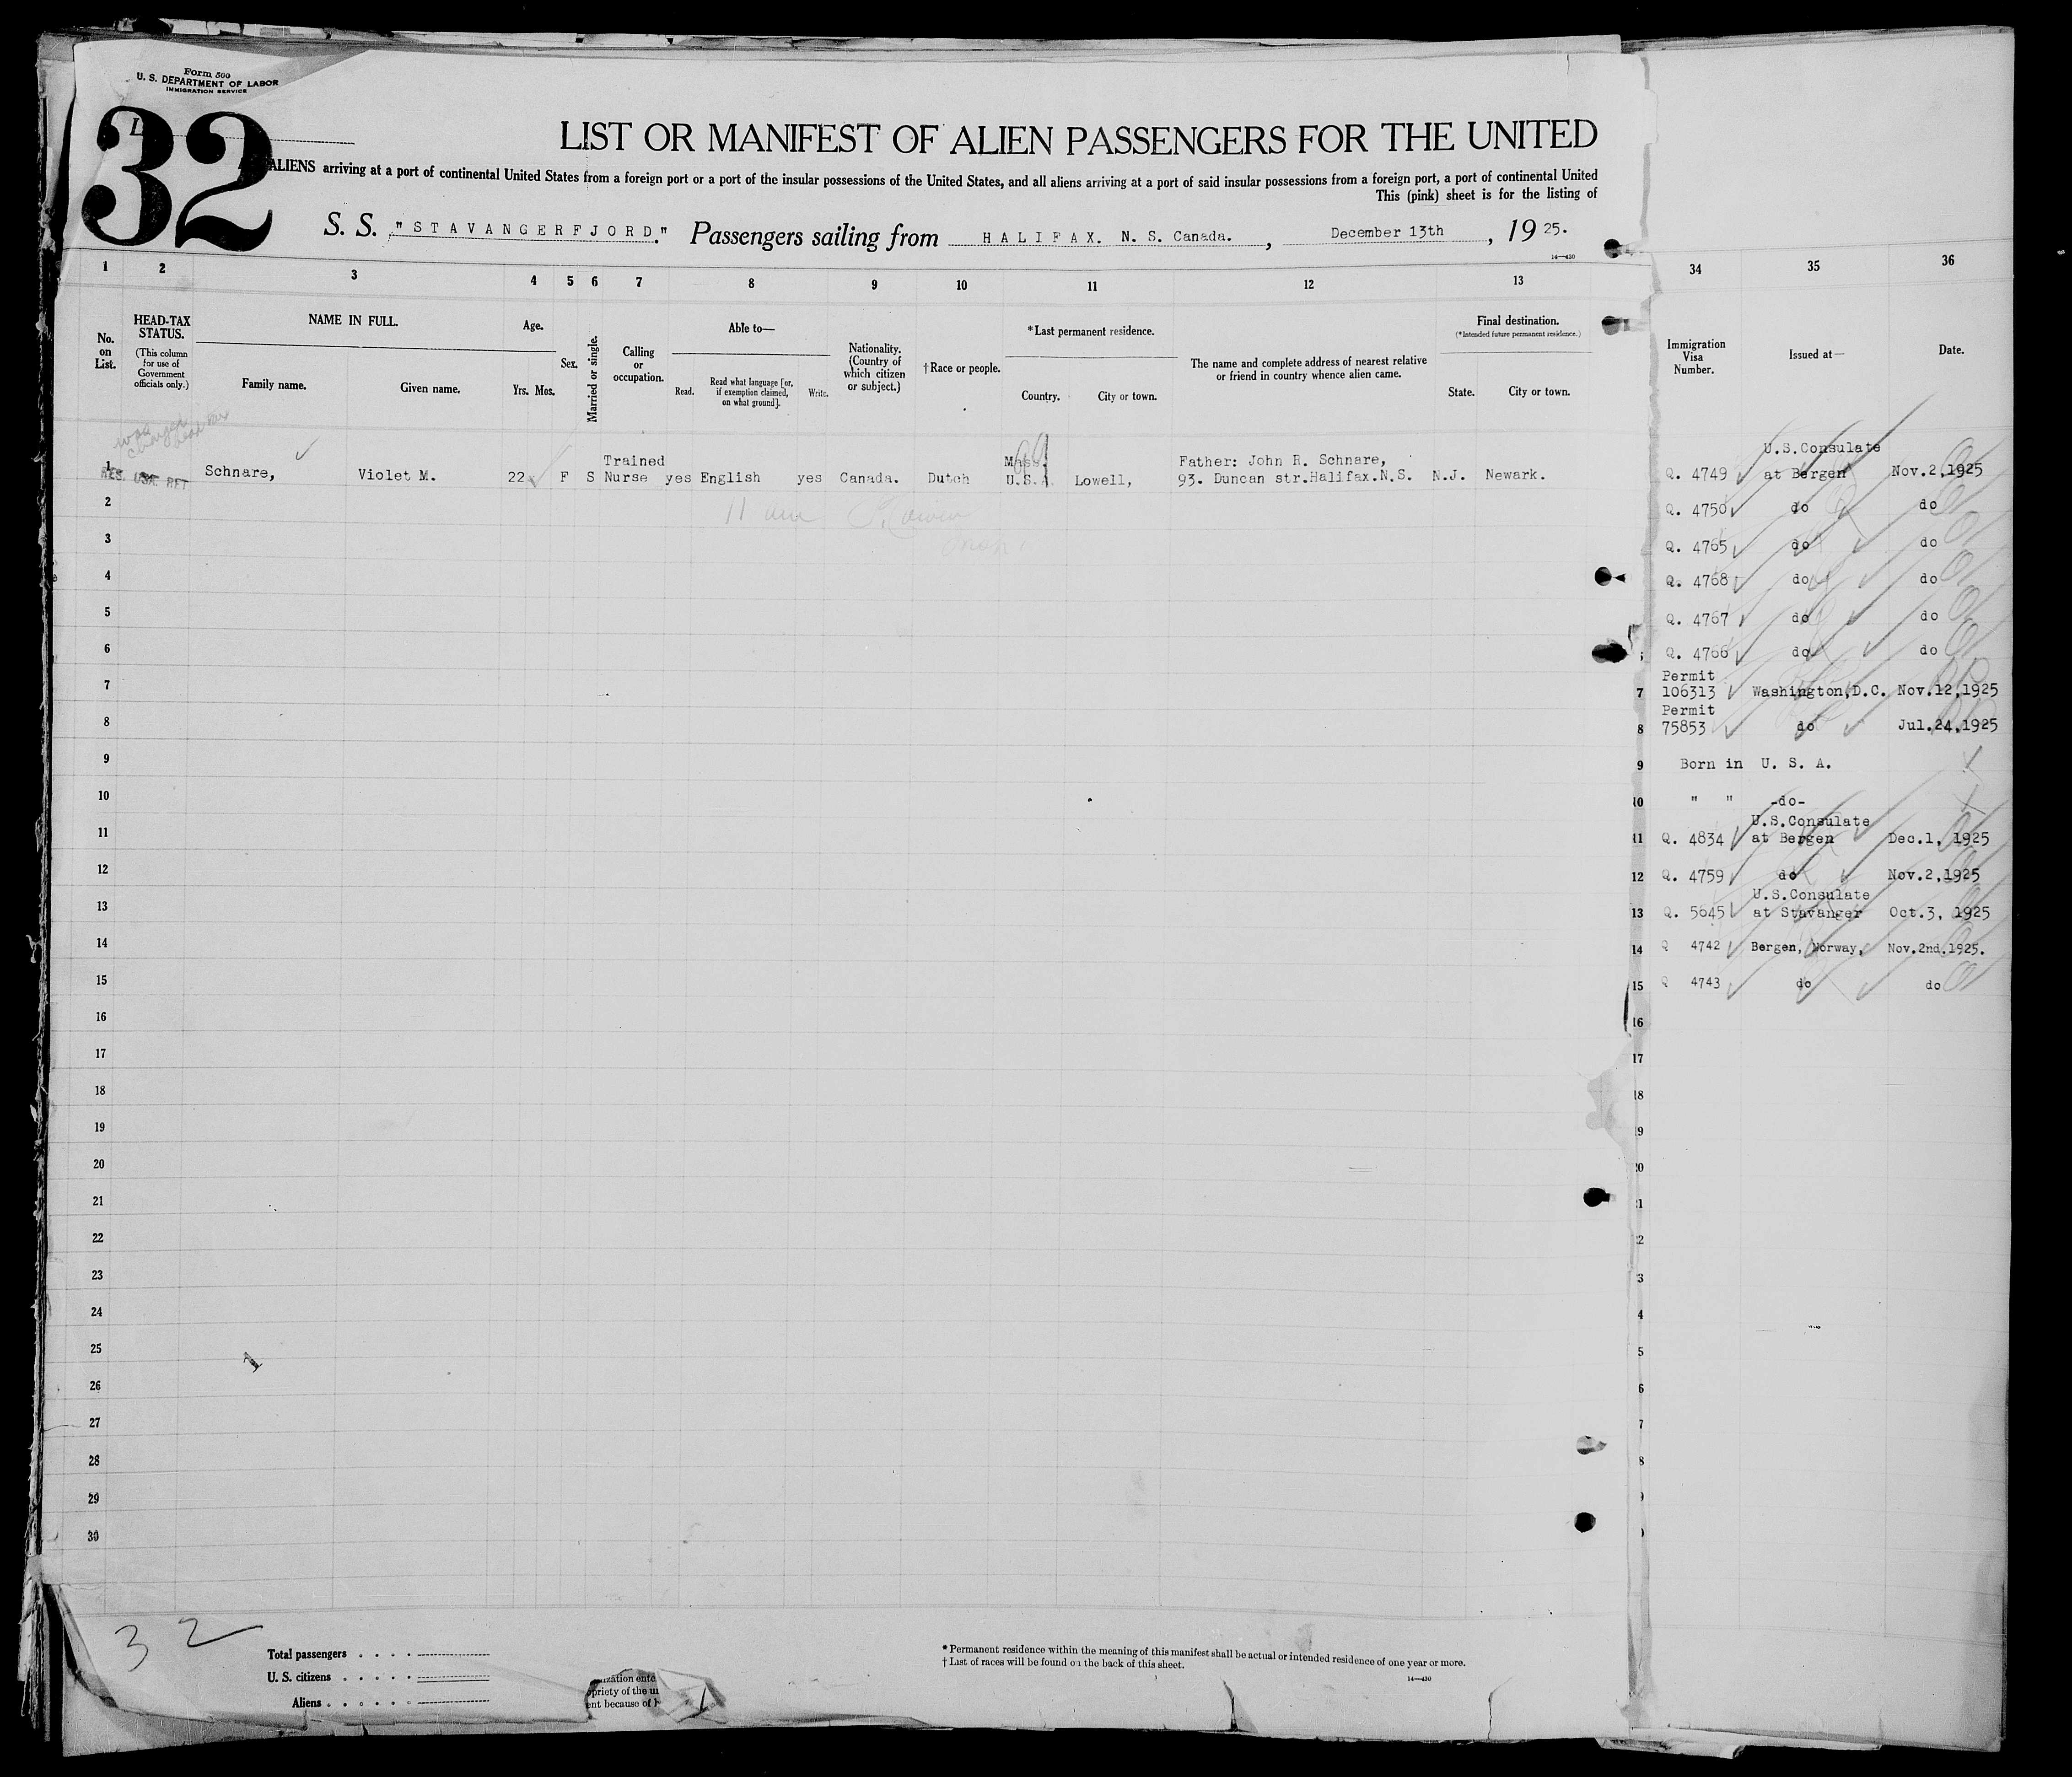 Form 500
U. S. DEPARTMENT OF LABOR
IMMIGRATION SERVICE
32
LIST OR MANIFEST OF ALIEN PASSENGERS FOR THE UNITED
ALIENS arriving at a port of continental United States from a foreign port or a port of the insular possessions of the United States, and all aliens arriving at a port of said insular possessions from a foreign port, a port of continental United
This (pink) sheet is for the listing of
S. S. "STAVANGERFJORD." Passengers sailing from HALIFAX. N. S. Canada., December 13th, 19 25.
14—430
1 2 3 4 5 6 7 8 9 10 11 12 13
No. on List.
HEAD-TAX STATUS.
(This column for use of Government officials only.)
NAME IN FULL.
Family name. Given name.
Age.
Yrs. Mos.
Sex.
Married or single.
Calling or occupation.
Able to—
Read. Read what language [or, if exemption claimed, on what ground]. Write.
Nationality. (Country of which citizen or subject.)
† Race or people.
*Last permanent residence.
Country. City or town.
The name and complete address of nearest relative or friend in country whence alien came.
Final destination.
(*Intended future permanent residence.)
State. City or town.
1 Schnare, Violet M. 22 F S Trained Nurse yes English yes Canada. Dutch Mass. U.S.A. Lowell, Father: John R. Schnare, 93. Duncan str.Halifax.N.S. N.J. Newark.
2
3
4
5
6
7
8
9
10
11
12
13
14
15
16
17
18
19
20
21
22
23
24
25
26
27
28
29
30
32
Total passengers
U. S. citizens
Aliens
* Permanent residence within the meaning of this manifest shall be actual or intended residence of one year or more.
† List of races will be found on the back of this sheet.
14—430
34 35 36
Immigration Visa Number. Issued at— Date.
Q. 4749 U.S.Consulate at Bergen Nov.2,1925
Q. 4750 do do
Q. 4765 do do
Q. 4768 do do
Q. 4767 do do
Q. 4766 do do
7 Permit 106313 Washington,D.C. Nov.12,1925
8 Permit 75853 do Jul.24,1925
9 Born in U. S. A.
10 " " -do-
11 Q. 4834 U.S.Consulate at Bergen Dec.1, 1925
12 Q. 4759 do Nov.2,1925
13 Q. 5645 U.S.Consulate at Stavanger Oct.3, 1925
14 Q 4742 Bergen, Norway, Nov.2nd.1925.
15 Q 4743 do do
16
17
18